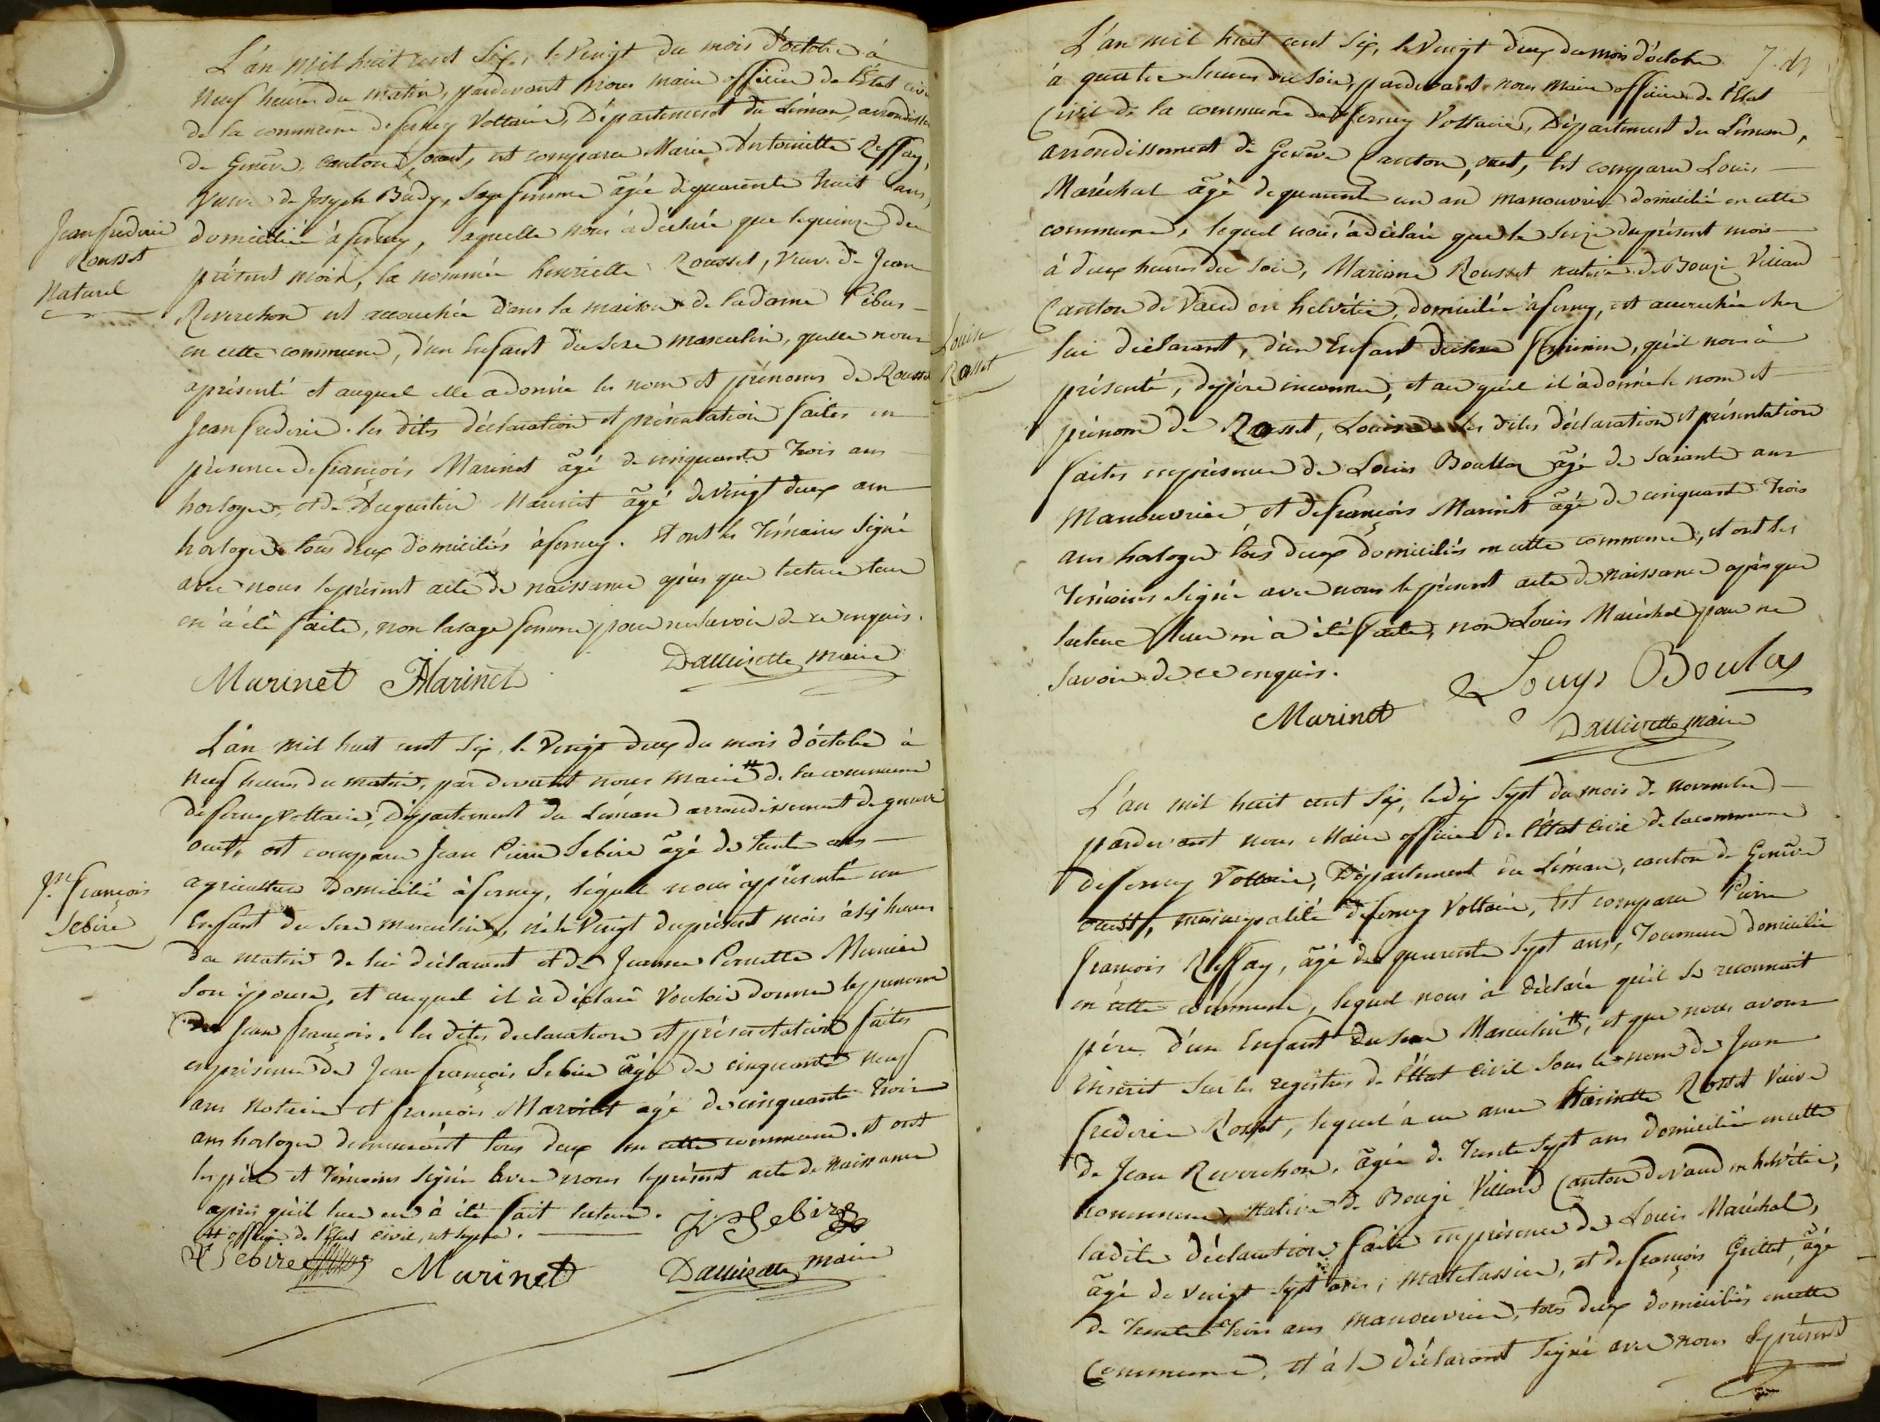 L'an mil huit cent six, le vingt du mois d'octobre à
neuf heures du matin, pardevant nous maire officier de l'Etat civil
de la commune de ferney Voltaire, Département du Léman, arrondisst
de Genève, canton ouest, est comparu Marie Antoinette Reffay,
veuve de Joseph Budy, sage femme âgée de quarente huit ans,
Jean frederic
Rousset
Naturel
domiciliée à ferney, laquelle nous à déclaré que le quinze du
présent mois, la nommée henriette Rousset, veuve de Jean
Reverchon est accouchée dans la maison de la dame
en cette commune, d'un Enfant du sexe masculin, quelle nous
a présenté et auquel elle a donnée les nom et prénoms de Rousset
Jean frederic. les dites déclaration et présentation faites en
présence de françois Marinet âgé de cinquante trois ans
horloger, et de Augustin Marinet âgé de vingt deux ans
horloger tous deux domiciliés à ferney. Et ont les Témoins signé
avec nous le présent acte de naissance après que lecture leur
en à été faite, non la sage femme pour ne savoir de ce enquis.
Marinet Marinet Dallizette maire
L'an mil huit cent six, le vingt deux du mois d'octobre à
neuf heures du matin, par devant nous maire # de la commune
de ferney voltaire, Département du Léman arrondissement de geneve
ouest, est comparu Jean Pierre Sebire âgé de trente ans
Jn. françois
Sebire
agriculteur domicilié à ferney, lequel nous à présenté un
Enfant du sexe masculin, né le vingt du présent mois à six heures
du matin de lui déclarant et de Jeanne Pernette Munier
son épouse, et auquel il à déclaré vouloir donner les prenoms
de Jean françois. les dites declaration et présentation faites
en présence de Jean françois Sebire âgé de cinquante neuf
ans notaire et françois Marinet agé de cinquante trois
ans horloger demeurant tous deux en cette commune. et ont
les père et Témoins signé avec nous le présent acte de naissance
après qu'il leur en à été fait lecture. JP Sebire
# officier de l'Etat civil,
Sebire Marinet Dallizette maire
L'an mil huit cent six, le vingt deux du mois d'octobre
à quatre heures du soir, pardevant nous maire officier de l'Etat
Civil de la commune de ferney Voltaire, Département du Léman,
arrondissement de Genève Canton ouest, Est comparu Louis
Maréchal âgé de quarente un an manouvrier domicilié en cette
commune, lequel nous à déclaré que le seize du présent mois
à deux heures du soir, Mariane Rousset native de Bougi Villard
Canton de Vaud en helvétie, domiciliée à ferney, est accouchée chez
Louise
Rosset
lui déclarant, d'un Enfant du sexe feminin, qu'il nous à
présenté, de père inconnu, et au quel il à donné le nom et
prénom de Rosset, Louise les dites déclaration et présentation
faites en présence de Louis Boullaz âgé de soixante ans
manouvrier et de françois Marinet âgé de cinquante trois
ans horloger tous deux domiciliés en cette commune, et ont les
Témoins signé avec nous le présent acte de naissance après que
lecture leur en à été faite, non Louis Maréchal pour ne
savoir de ce enquis. Louys Boulaz
Marinet Dallizette maire
L'an mil huit cent six, le dix sept du mois de novembre
pardevant nous Maire officier de l'Etat civil de la commune
de ferney Voltaire, Département du Léman, canton de Genève
ouest, municipalité de ferney Voltaire, Est comparu Pierre
françois Reffay, âgé de quarente sept ans, Tourneur domicilié
en cette commune, lequel nous à déclaré qu'il se reconnait
père d'un Enfant du sexe Masculin #, et que nous avons
inscrit sur les registres de l'Etat civil sous le nom de Jean
frederic Rosset, lequel à eu avec henriette Rosset Veuve
de Jean Reverchon, âgée de trente sept ans domiciliée en cette
commune, Native de Bougi Villard Canton de Vaud en helvétie,
ladite déclaration faite en présence de Louis Maréchal,
âgé de vingt sept ans, matelassier, et de françois Grillet, âgé
de trente trois ans manouvrier, tous deux domiciliés en cette
Commune, et à le déclarant signé avec nous le présent